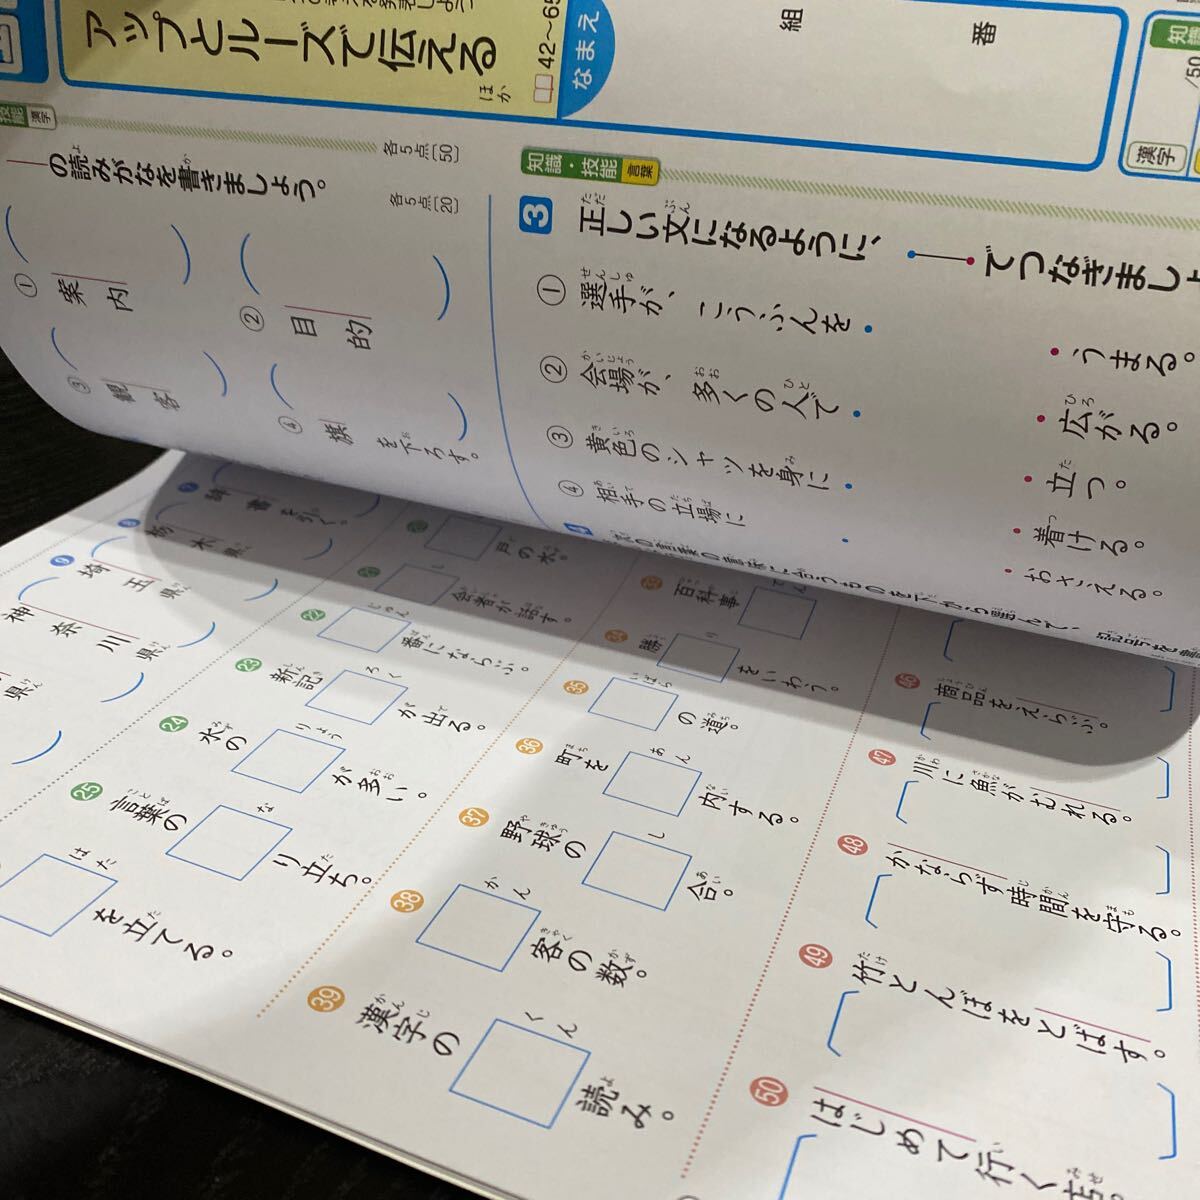 アップとルーズで伝える
ほか
42〜65
なまえ
組
番
知識
/50
漢字
技能
漢字
の読みがなを書きましょう。
各5点〔50〕
各5点〔20〕
① 案内
② 目的
③ 観客
④ 旗を下ろす。
知識・技能
言葉
3 正しい文になるように、
でつなぎましょ
① 選手が、こうふんを
② 会場が、多くの人で
③ 黄色のシャツを身に
④ 相手の立場に
うまる。
広がる。
立つ。
着ける。
おさえる。
8 栃木県
9 埼玉県
神奈川県
県
戸の水。
会者が話す。
22 じゅん 番にならぶ。
23 新記 ろく が出る。
24 水の りょう が多い。
25 言葉の な り立ち。
はた を立てる。
33 百科事 てん
34 勝 り をいわう。
35 いばら の道。
36 町を あん 内する。
37 野球の し 合。
38 かん 客の数。
39 漢字の くん 読み。
46 商品をえらぶ。
47 川に魚がむれる。
48 かならず時間を守る。
49 竹とんぼをとばす。
50 はじめて行く